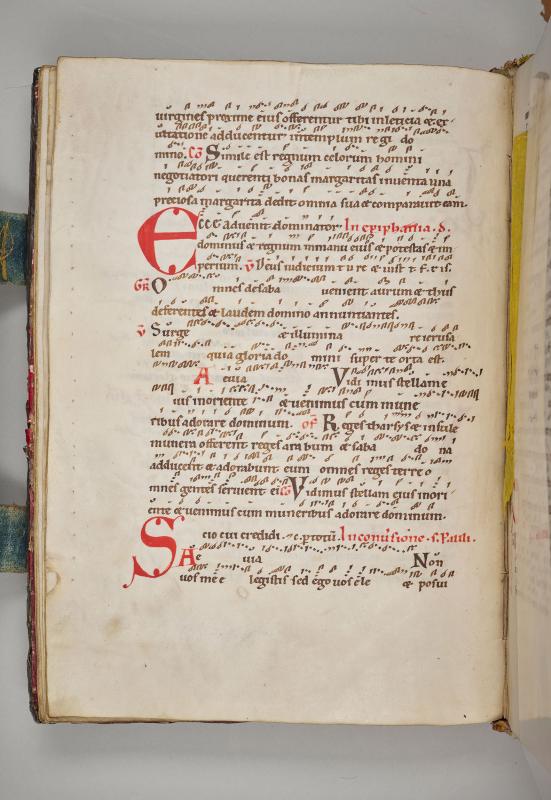 virgines proxime eius offerentur tibi inleticia et ex
ultatione adducentur intemplum regi do
mino. Co Simile est regnum celorum homini
negotiatori querenti bonas margaritas inventa una
preciosa margarita dedit omnia sua et comparavit eam.
Ecce advenit dominator In epiphania. d.
dominus et regnum inmanu eius et potestas et im
perium. v Deus iudicium t v re et iust t f r is.
Gr Omnes de saba venient aurum et thus
deferentes et laudem domino annuntiantes.
v Surge et illumina re ierusa
lem quia gloria do mini super te orta est.
A evia Vidi mus stellam e
ius in oriente et venimus cum mune
ribus adorare dominum. of Reges tharsys et insule
munera offerent reges ara bum et saba do na
adducent et adorabunt eum omnes reges terre o
mnes gentes servient ei co Vidimus stellam eius inori
ente et venimus cum muneribus adorare dominum.
Scio cui credidi In conversione s. Pauli.
Ae via Non
vos me e legistis sed ego vos ele et posui